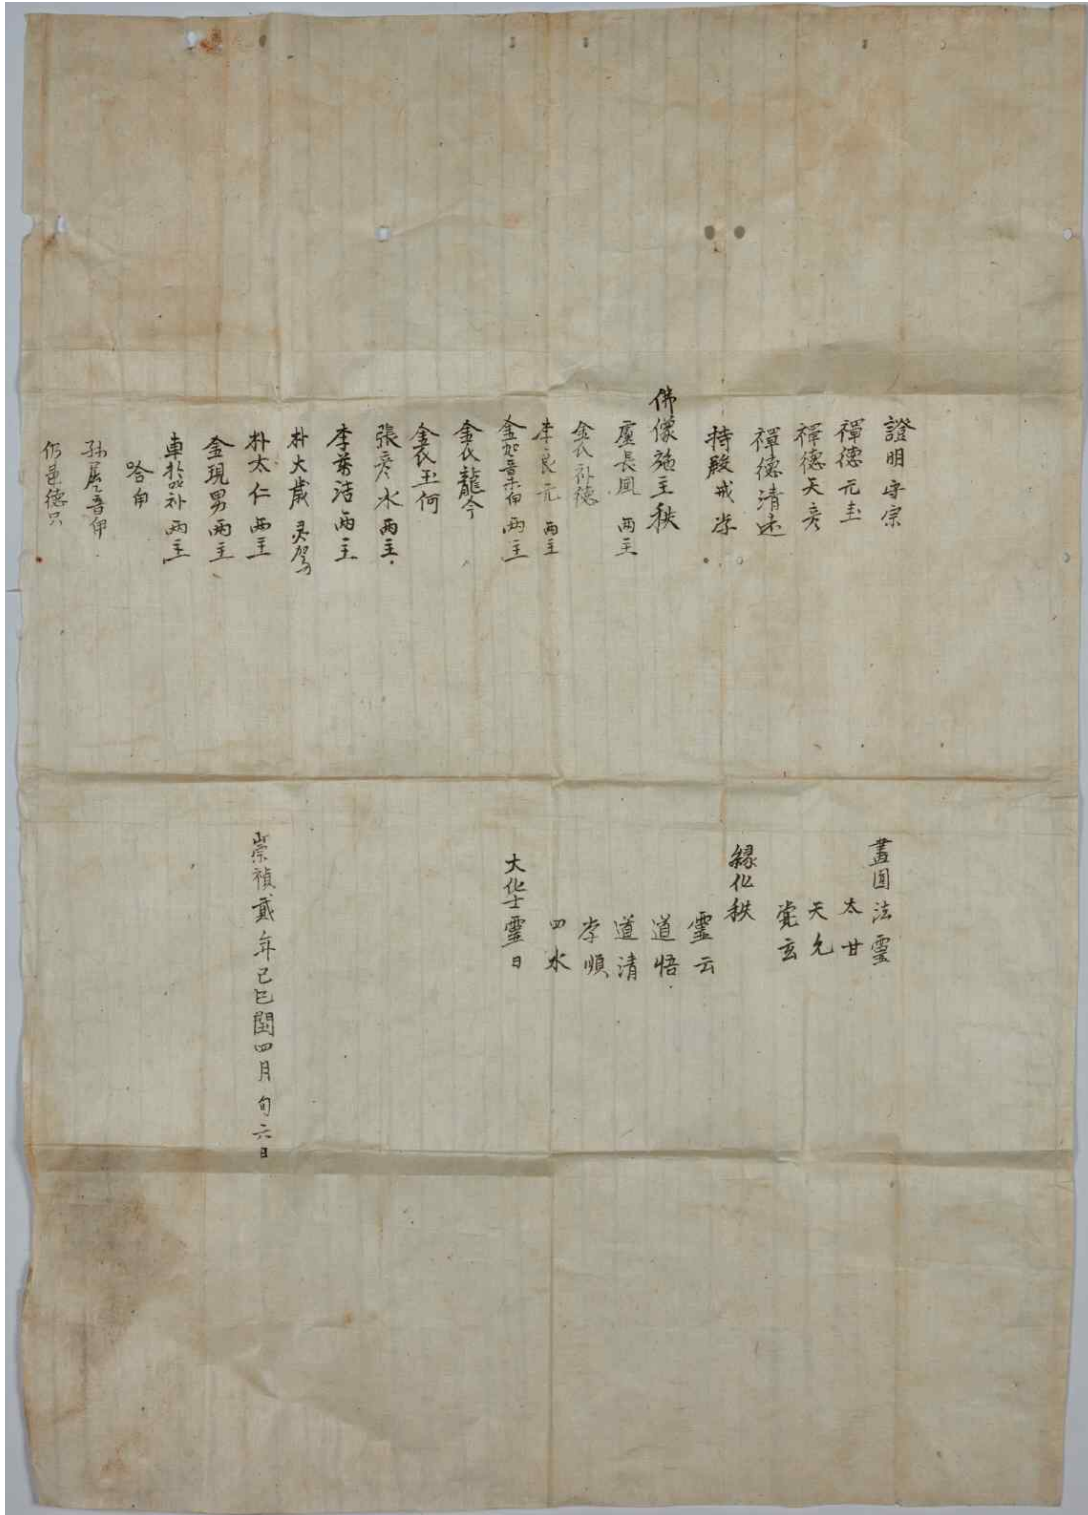 證明守宗
禪德元圭
禪德天彥
禪德清遠
持殿戒岑
佛像施主秩
盧長風 兩主
金氏补德
李良元 兩主
金加音 兩主
金氏龍今
金氏玉何
張彥水兩主
李希洁兩主
朴大歲灵駕
朴太仁兩主
金現男兩主
車 补兩主
哈
孫 音
德只
畵圓法靈
太甘
天允
覚玄
緣化秩
霊云
道悟
道清
李順
四水
大化士靈日
崇禎貳年己巳閏四月旬六日